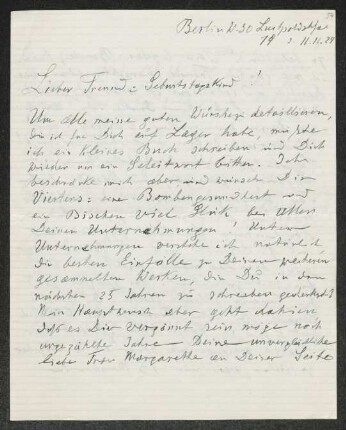 54
Berlin W. 30 Luitpoldstr.
19 11.11.29
Lieber Freund u Geburtstagskind !
Um alle meine guten Wünsche detaillieren,
die ich für Dich auf Lager habe, müßte
ich ein kleines Buch schreiben und Dich
wieder um ein Geleitwort bitten. Ich
beschränke mich aber und wünsche Dir
Viertens: eine Bombengesundheit und
ein Bischen viel Glück bei allen
Deinen Unternehmungen! Unter
Unternehmungen verstehe ich natürlich
die besten Einfälle zu Deinen weiteren
gesammelten Werken, die Du in den
nächsten 25 Jahren zu schreiben gedenkst!
Mein Hauptwunsch aber geht dahin
daß es Dir vergönnt sein möge noch
ungezählte Jahre Deine unvergleichliche
liebe Frau Margarethe an Deiner Seite